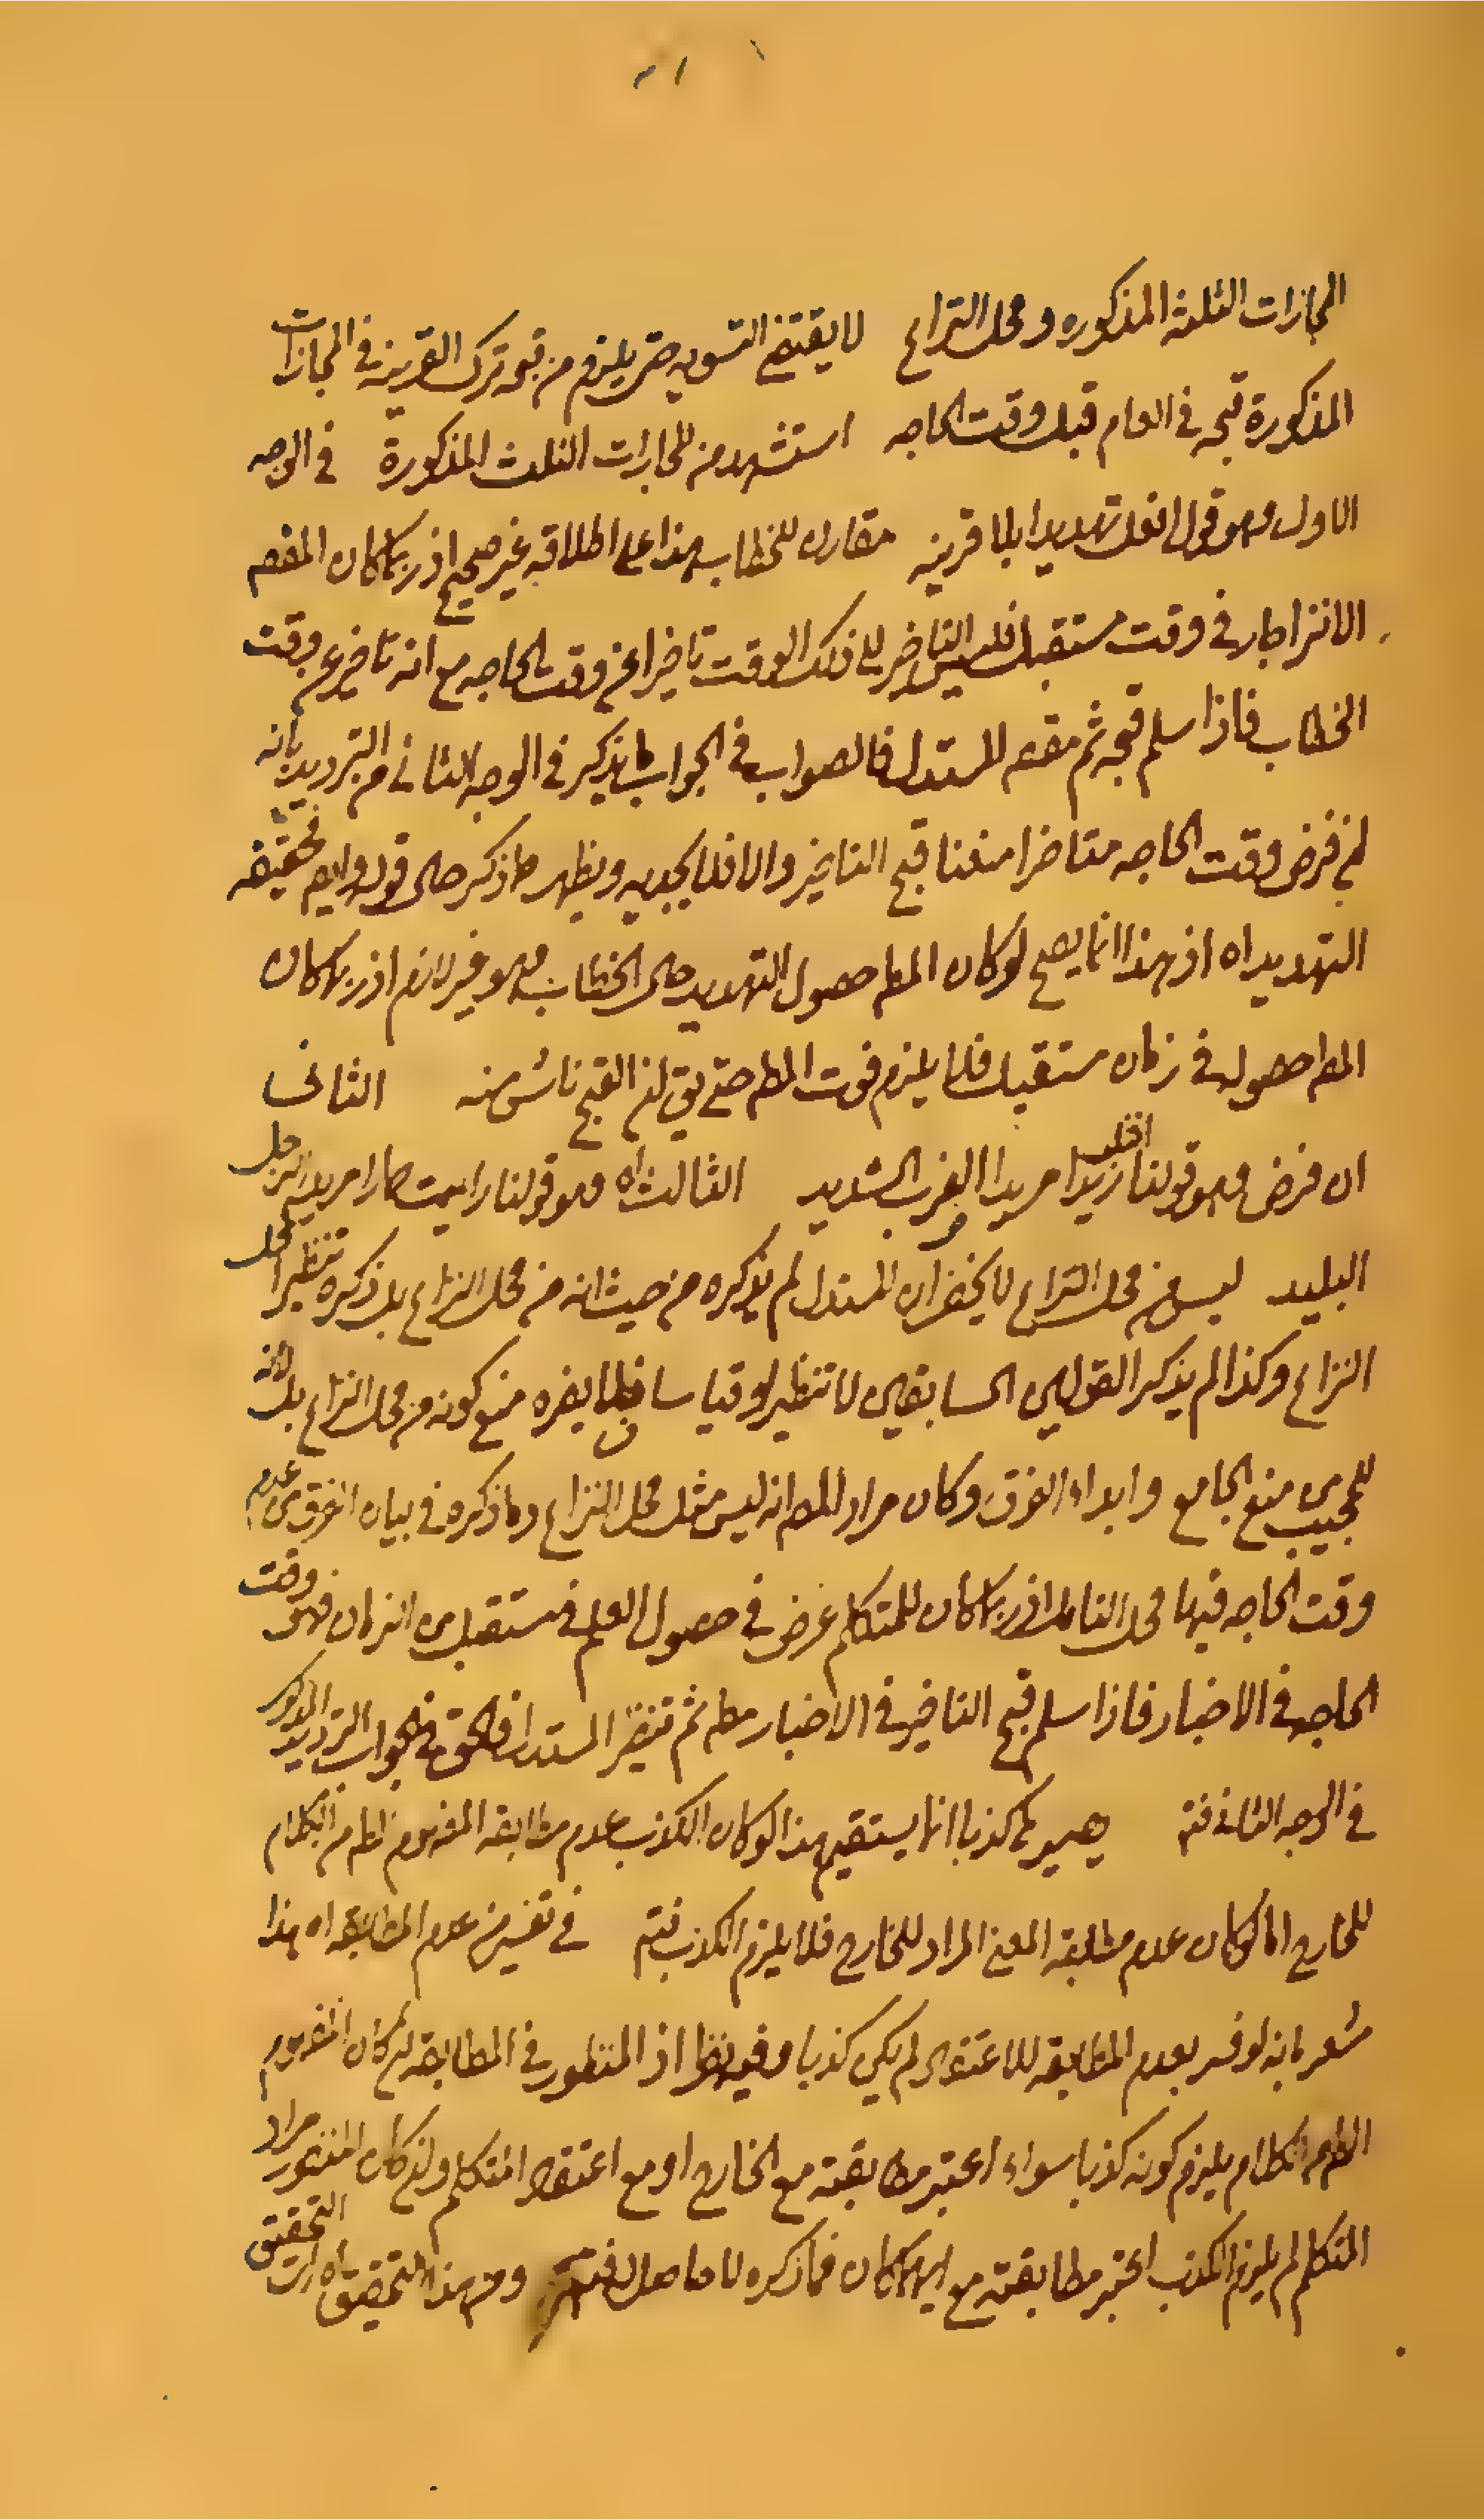 المجازات الثلثه المذكوره ومحل النزاع لا يقتضى التسويه حتى يلزم من قبح ترك القرينه فى المجازات
المذكورة قبحه فى العام قبل وقت الحاجه استشهد من المجازات الثلث المذكورة فى الوجه
الاول وهو قول افعل تهديدا بلا قرينه مقارن للخطاب هذا على اطلاقه غير صحيح اذ ربما كان المقصم
الانزاجار فى وقت مستقبل فليس التاخير الى ذلك الوقت تاخيرا عن وقت الحاجه مع انه تاخير عن وقت
الخطاب فاذا سلم قبحه ثم مقصم المستدل فالصواب فى الجواب ما يذكر فى الوجه الثانى من الترديد بانه
ان فرض وقت الحاجه متاخرا منعنا قبح التاخير والا فلا يجديه ويظهر ما ذكر حال قوله وايضا تحقيقه
التهديد اه اذ هذا انما يصح لو كان المطم حصول التهديد حال الخطاب وهو غير لازم اذ ربما كان
المطم حصوله فى زمان مستقبل فلا يلزم فوت المطم حتى يق ان القبح ناش منه الثانى
ان فرض وهو قولنا اقتل زيدا مريدا الضرب الشديد الثالث اه وهو قولنا رايت حمارا مريدا الرجل
البليد ليس من محل النزاع لا يخفى ان المستدل لم يذكره من حيث انه من محل النزاع بل ذكره تنظيرا لمحل
النزاع وكذا لم يذكر القولين السابقين الا تنظيرا وقياسا فلا يضره منع كونه من محل النزاع بل لانه
للمجيب من منع الجامع وابداء الفرق وكان مراد المص انه ليس مثل محل النزاع وما ذكره فى بيان الفرق من عدم
وقت الحاجه فيها محل التامل اذ ربما كان للمتكلم غرض فى حصول العلم فى مستقبل من الزمان فهو وقت
الحاجه فى الاخبار فاذا سلم قبح التاخير فى الاخبار مطم ثم تنظير المستدل فالحق فى الجواب الترديد المذكور
فى الوجه الثانى فتم هيير كم كذبا انما يستقيم هذا لو كان الكذب عدم مطابقه المفهوم الظم من الكلام
للخارج اما لو كان عدم مطابقه المعنى المراد للخارج فلا يلزم الكذب فتم فى تفسير من عدم المطابقه اه هذا
مشعر بانه لو فسر بعدم المطابقه للاعتقاد لم يكن كذبا وفيه نظر اذ المنظور فى المطابقه ان كان المفهوم
الظم من الكلام يلزم كونه كذبا سواء اعتبر مطابقته مع الخارج او مع اعتقاد المتكلم وان كان المنظور مراد
المتكلم لم يلزم الكذب اعتبر مطابقته مع ايهما كان فما ذكره لا حاصل له فتم ومن هذا التحقيق اه ارت التحقيق